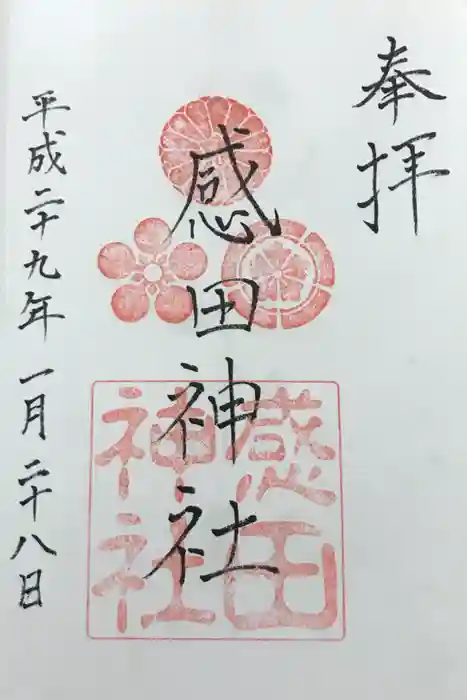 奉拝
感田神社
感田
神社
平成二十九年一月二十八日